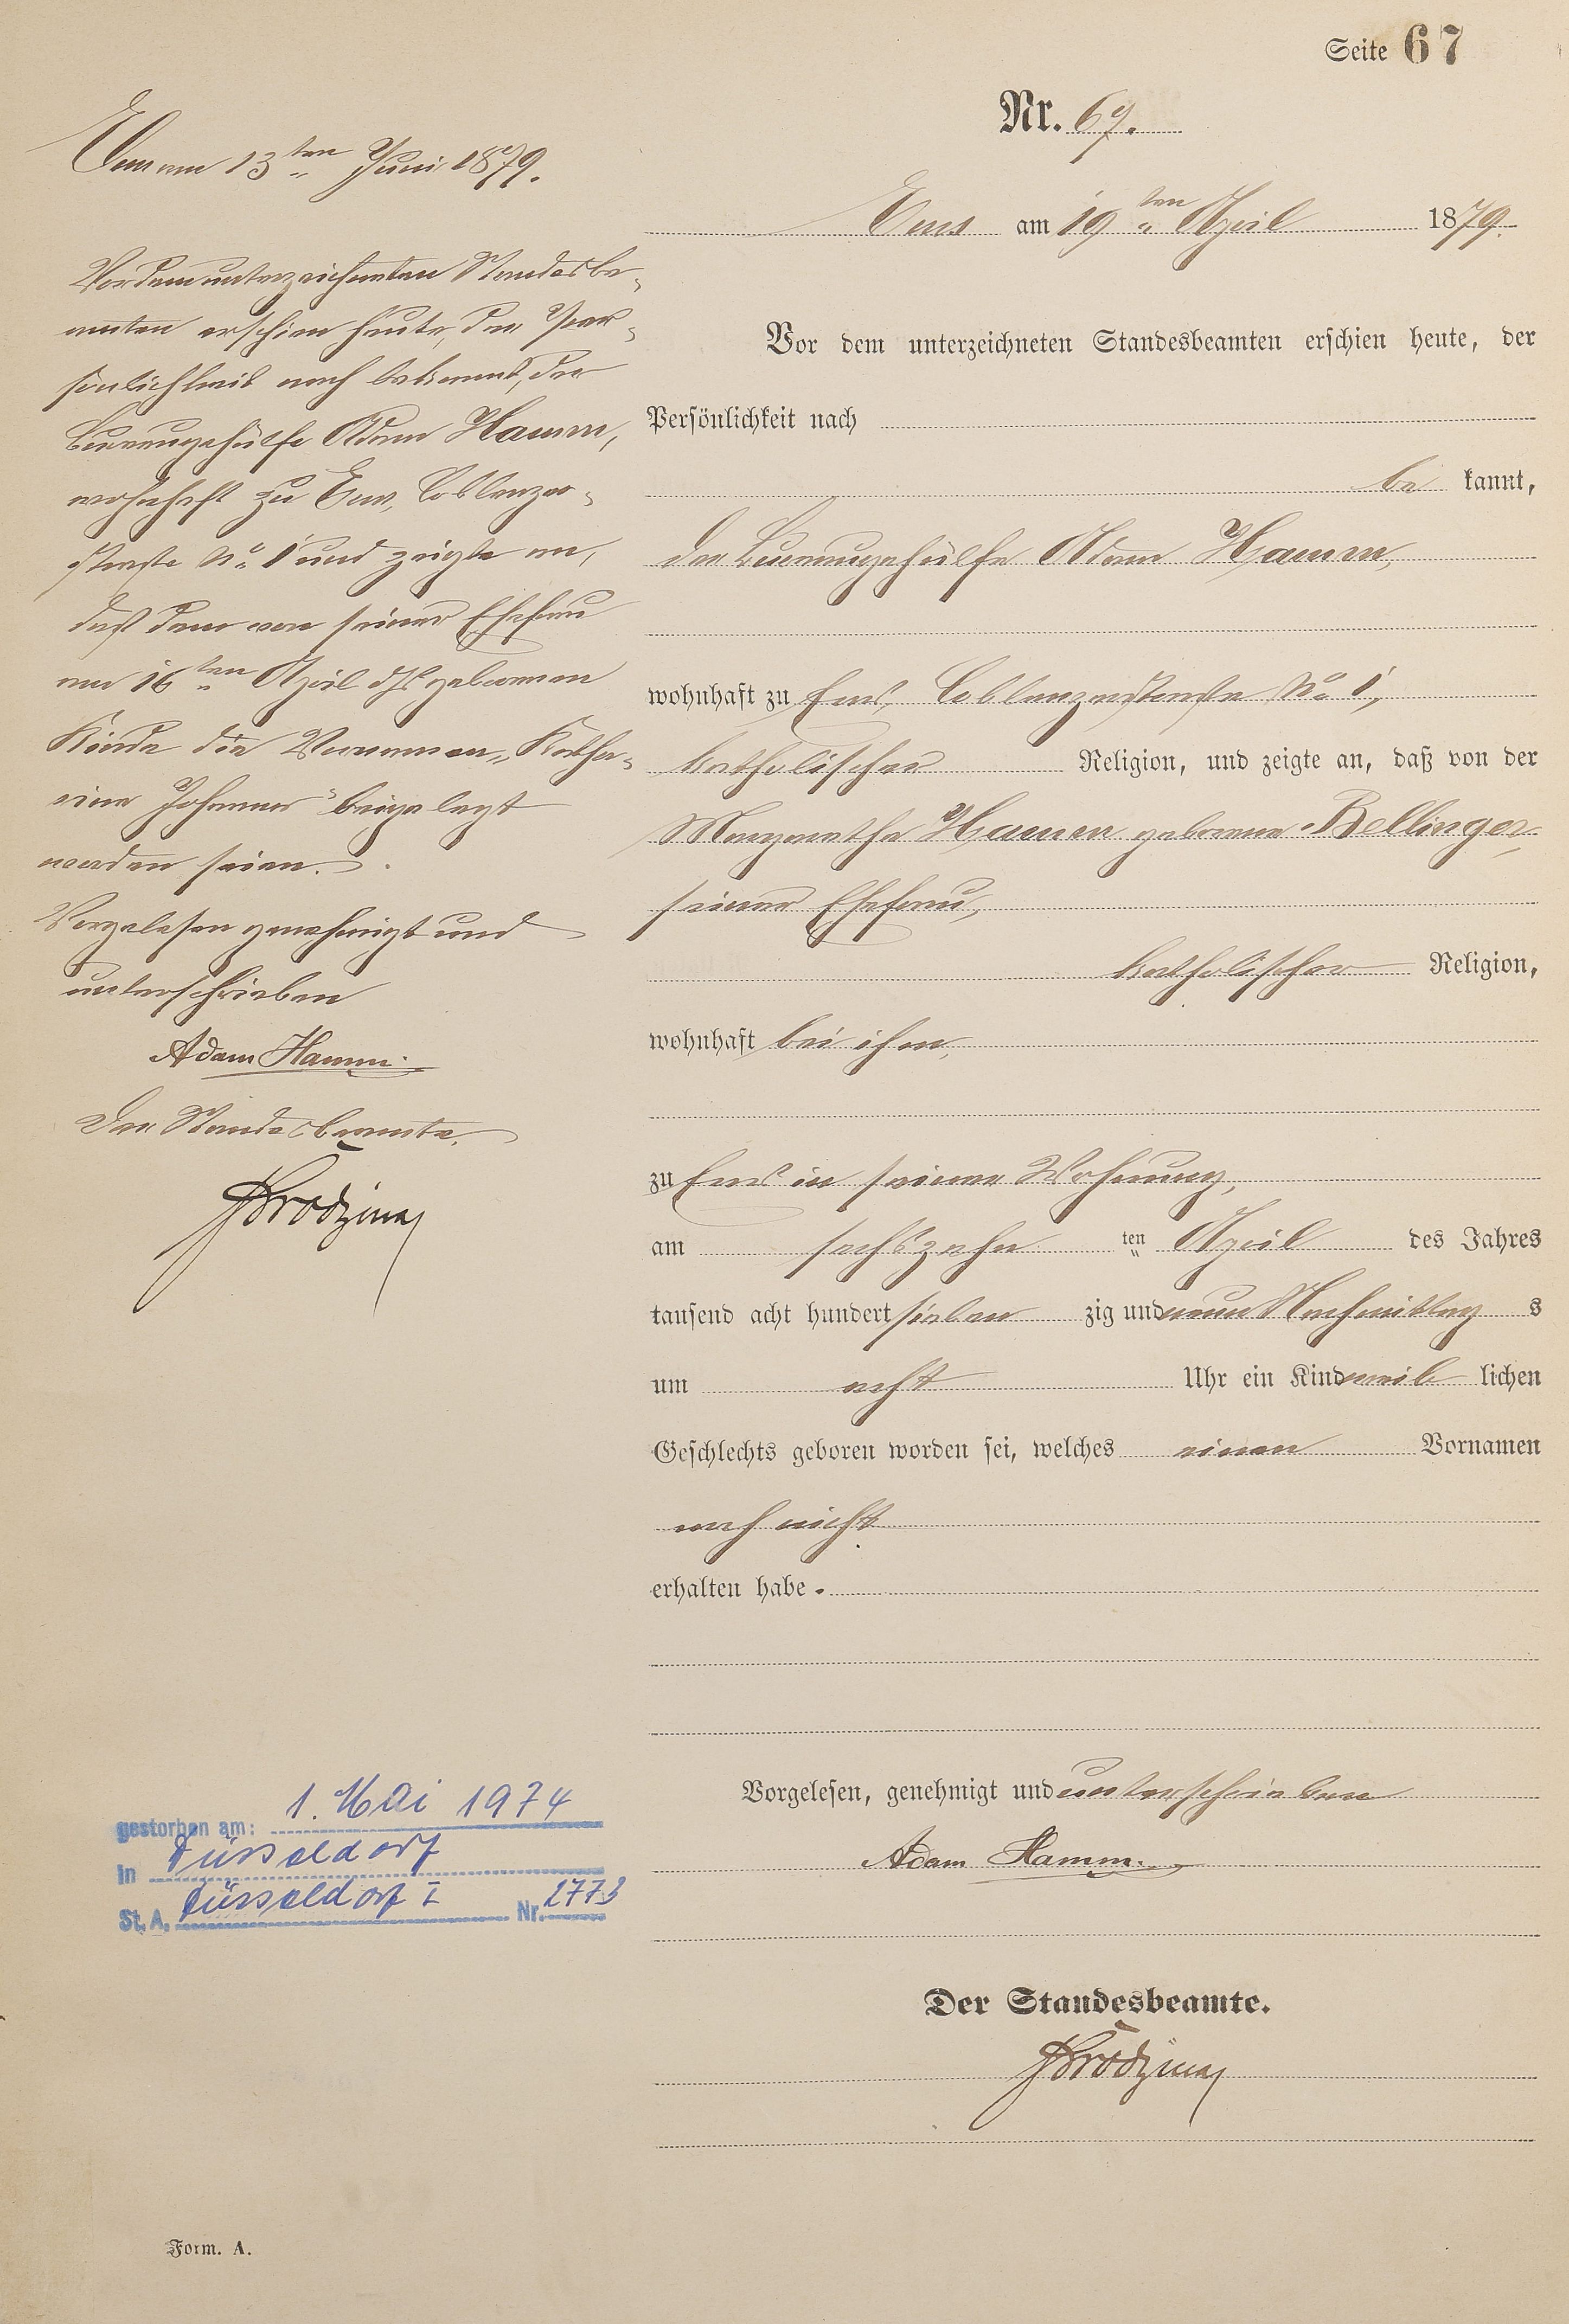 Seite 67
Nr. 67.
Ems am 19ten April 1879.
Vor dem unterzeichneten Standesbeamten erschien heute, der
Persönlichkeit nach
be kannt,
der Adam Hamm,
wohnhaft zu Ems, Coblenzerstraße No 1,
katholischer Religion, und zeigte an, daß von der
Margaretha Hamm geborene Bellinger,
seiner Ehefrau,
katholischer Religion,
wohnhaft bei ihm,
zu Ems in seiner Wohnung,
am sechszehn ten April des Jahres
tausend acht hundert sieben zig und neun Nachmittag s
um acht Uhr ein Kind weib lichen
Geschlechts geboren worden sei, welches einen Vornamen
noch nicht
erhalten habe.
Vorgelesen, genehmigt und unterschrieben
Adam Hamm.
Der Standesbeamte.
Ems am 13ten Juni 1879.
Vor dem unterzeichneten Standesbe-
amten erschien heute, der Per-
sönlichkeit nach bekannt, der
Adam Hamm,
wohnhaft zu Ems, Coblenzer-
straße No 1 und zeigte an,
daß dem von seiner Ehefrau
am 16ten April ds geborenen
Kinde die Vornamen „Katha-
rina Johanna" beigelegt
worden seien.
Vorgelesen genehmigt und
unterschrieben
Adam Hamm.
Der Standesbeamte.
gestorben am: 1. Mai 1974
in Düsseldorf
St. A. Düsseldorf I Nr. 2773
Form. A.